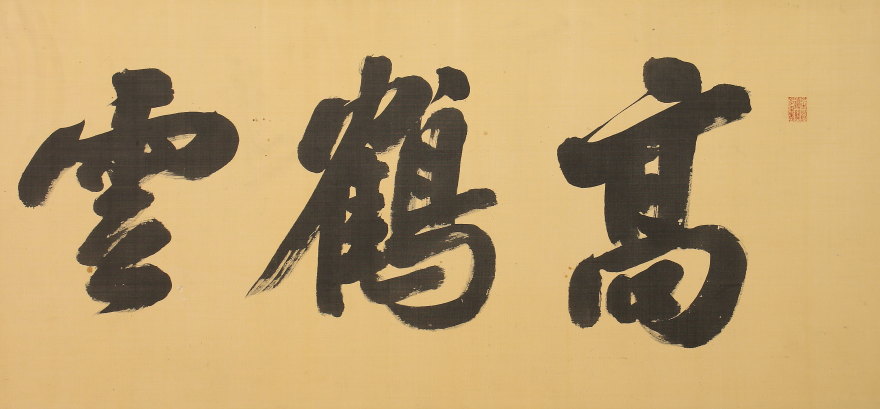 高鶴雲